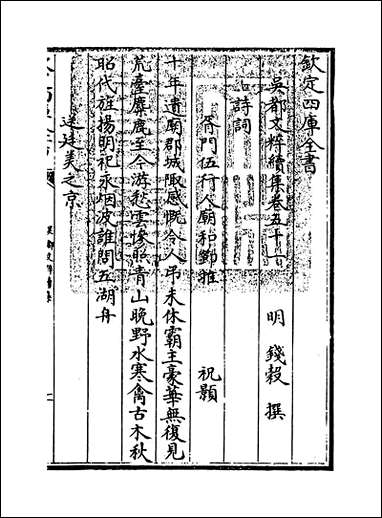 欽定四庫全書
吳都文粹續集卷五十一
明 錢榖 撰
詩詞
胥門伍行人廟和鄭雅 祝顥
十年遺廟郡城陬感慨令人弔未休霸主豪華無復見
荒臺麋鹿至今游愁雲慘照青山晚野水寒禽古木秋
昭代旌揚明祀永烟波誰問五湖舟
送廷美之京
吳都文粹續集